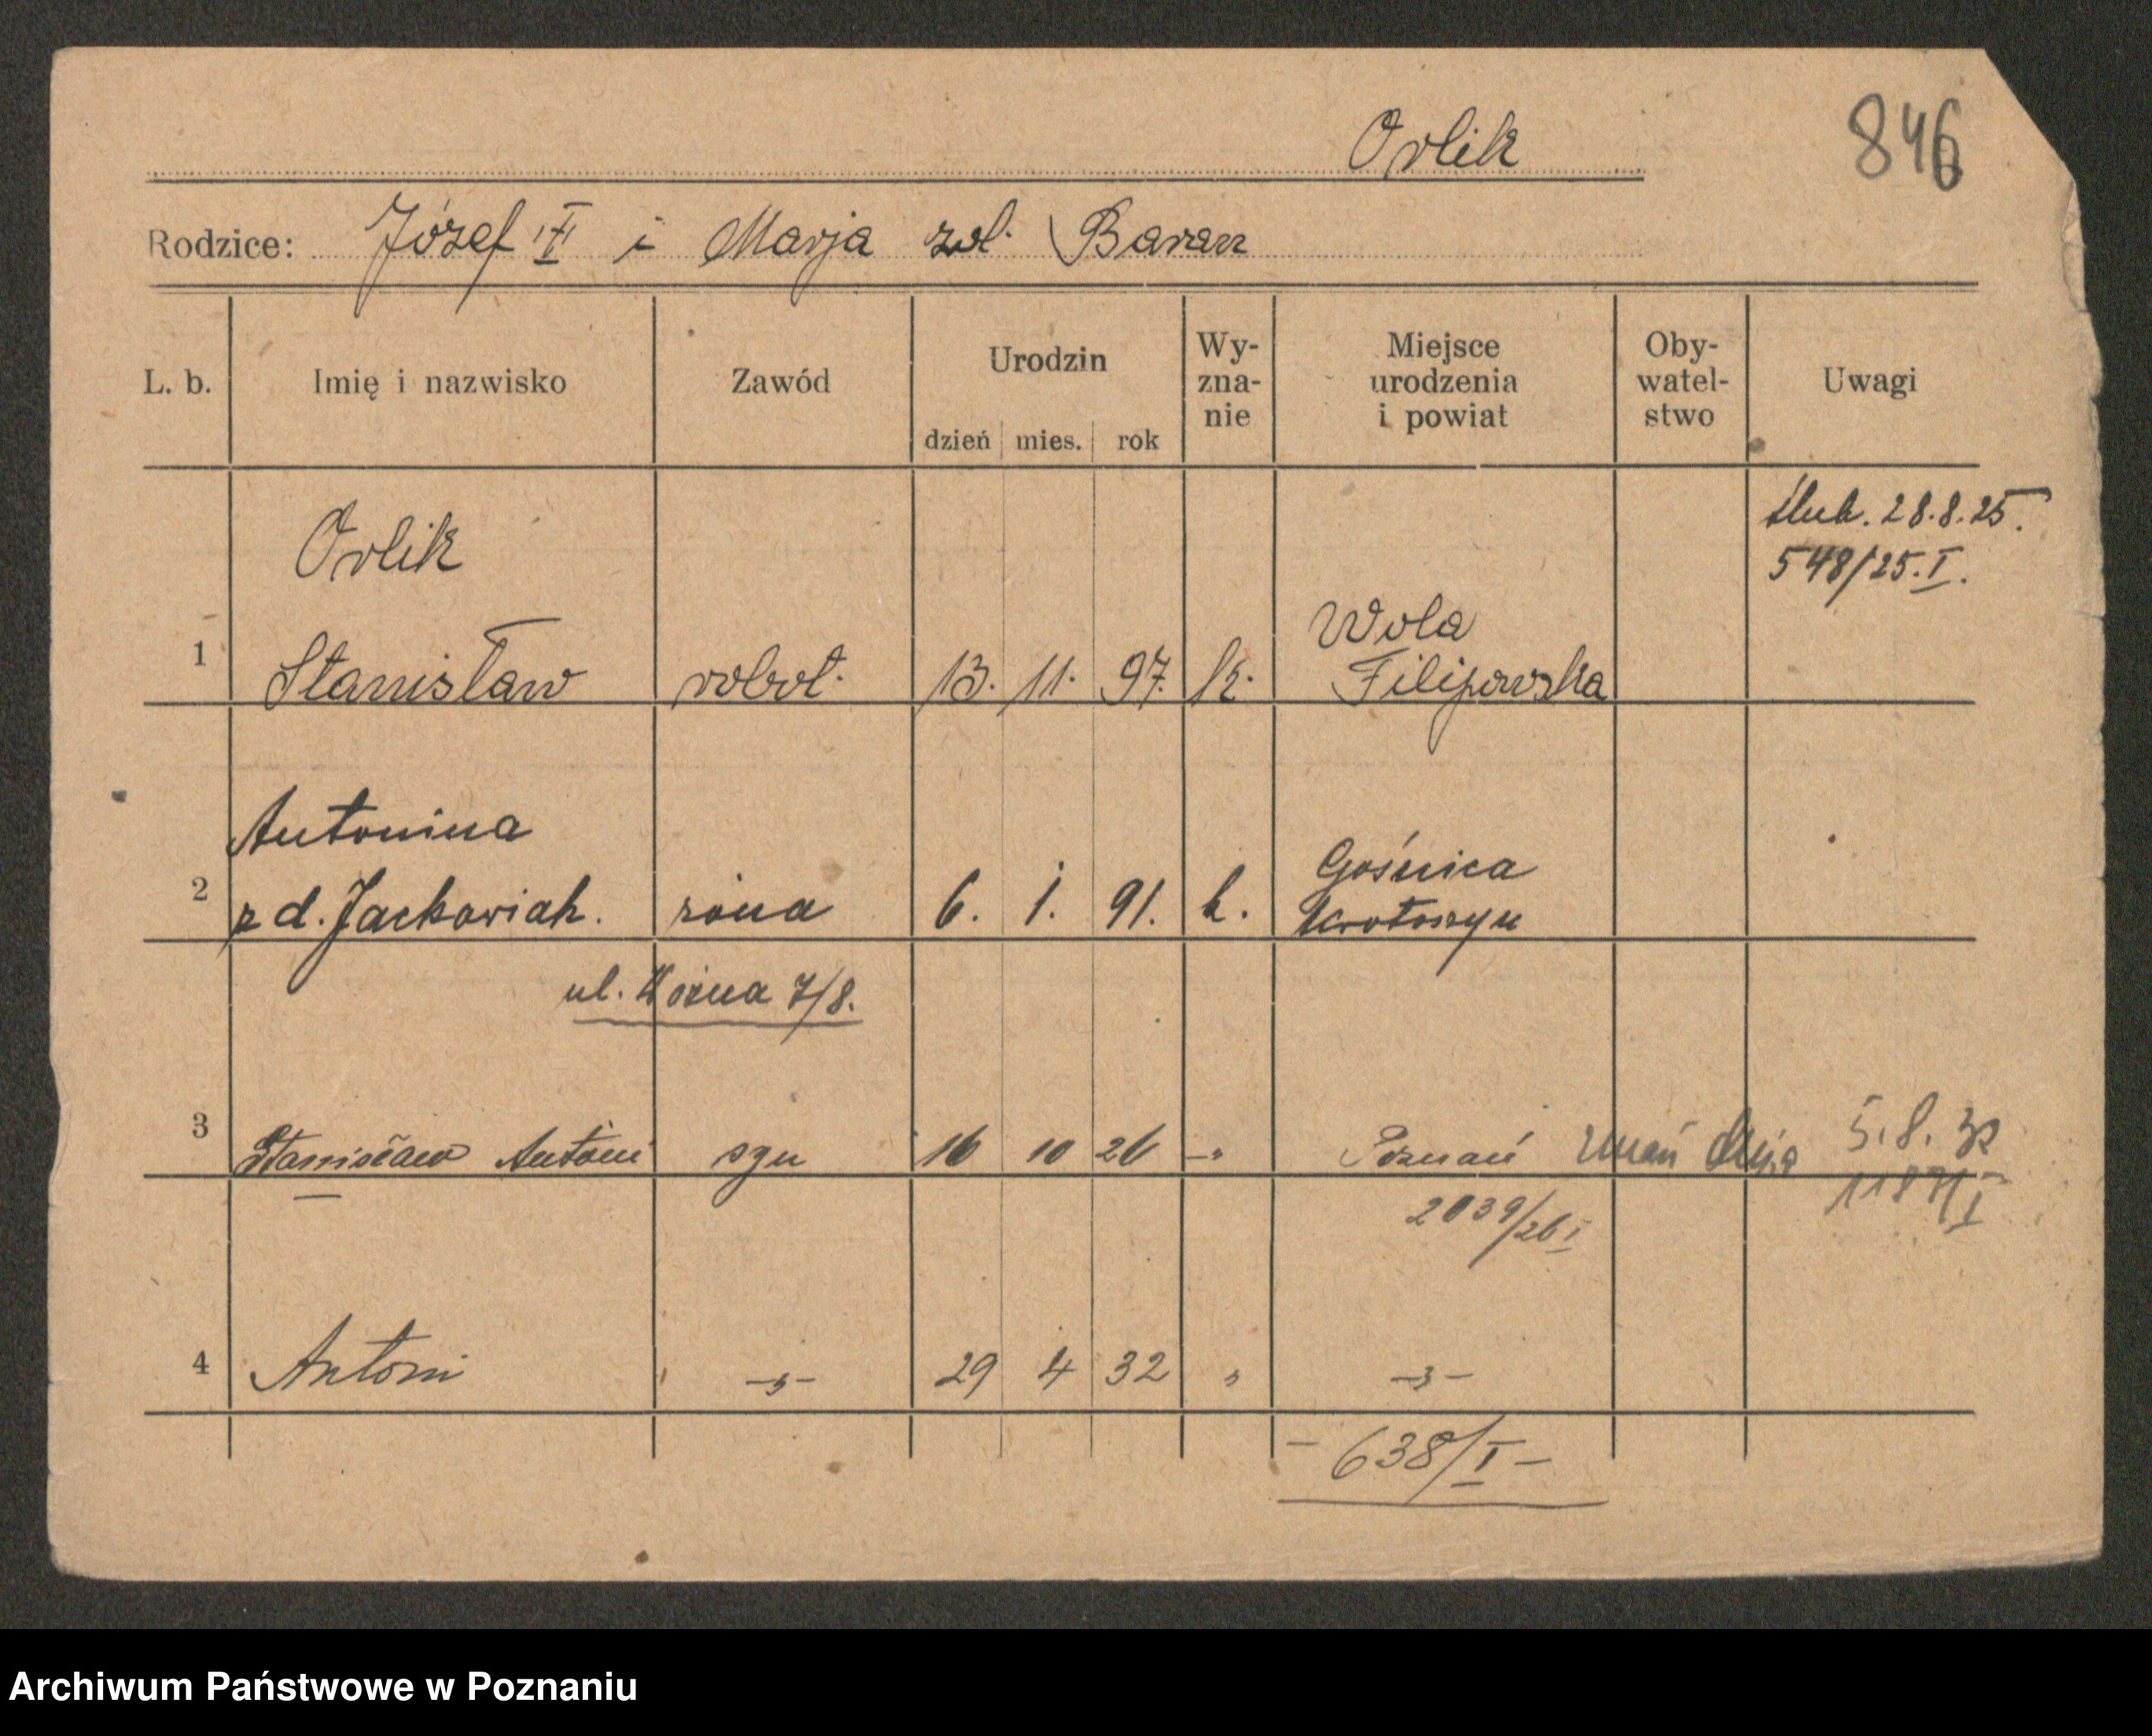 Orlik
846
Rodzice: Józef i Marja Baran
L. b. Imię i nazwisko Zawód Urodzin dzień mies. rok Wy-zna-nie Miejsce urodzenia i powiat Oby-watel-stwo Uwagi
Ślub. 28.8.25.
548/25.I.
Orlik
1 Stanisław robot. 13. 11. 97. k. Wola Filipowska
Antonina
2 z d. Jackowiak. żona 6. 1. 91. k. Gośnica Krotoszyn
ul. Woźna 7/8.
3 Stanisław Antoni syn 16 10 26 -„ Poznań 5.8.32
2039/26 I
4 Antoni -„- 29 4 32 „ -„-
- 638/I -
Archiwum Państwowe w Poznaniu